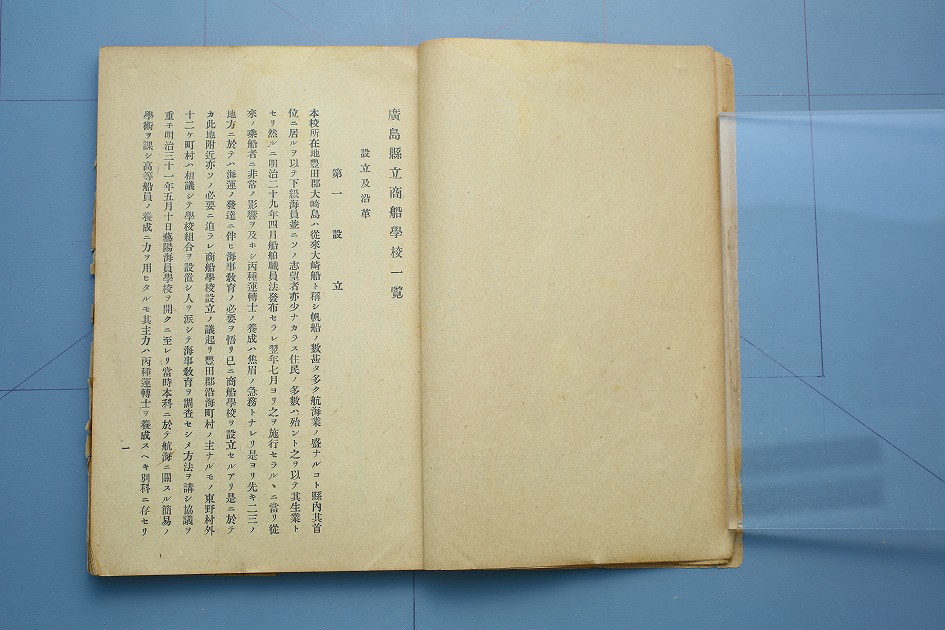 廣島縣立商船學校一覽
設立及沿革
第一 設立
本校所在地豊田郡大崎島ハ從來大崎船ト稱シ帆船ノ數甚タ多ク航海業ノ盛ナルコト縣內其首
位ニ居ルヲ以テ下級海員並ニソノ志望者亦少ナカラス住民ノ多數ハ殆ント之ヲ以テ其生業ト
セリ然ルニ明治二十九年四月船舶職員法發布セラレ翌年七月ヨリ之ヲ施行セラルヽニ當リ從
來ノ乘船者ニ非常ノ影響ヲ及ホシ丙種運轉士ノ養成ハ焦眉ノ急務トナレリ是ヨリ先キ二三ノ
地方ニ於テハ海運ノ發達ニ伴ヒ海事敎育ノ必要ヲ悟リ已ニ商船學校ヲ設立セルアリ是ニ於テ
カ此地附近亦ソノ必要ニ迫ラレ商船學校設立ノ議起リ豊田郡沿海町村ノ主ナルモノ東野村外
十二ケ町村ハ相議シテ學校組合ヲ設置シ人ヲ派シテ海事敎育ヲ調査セシメ方法ヲ講シ協議ヲ
重子明治三十一年五月十日藝陽海員學校ヲ開クニ至レリ當時本科ニ於テ航海ニ關スル簡易ノ
學術ヲ課シ高等船員ノ養成ニ力ヲ用ヒタルモ其主力ハ丙種運轉士ヲ養成スヘキ別科ニ存セリ
一